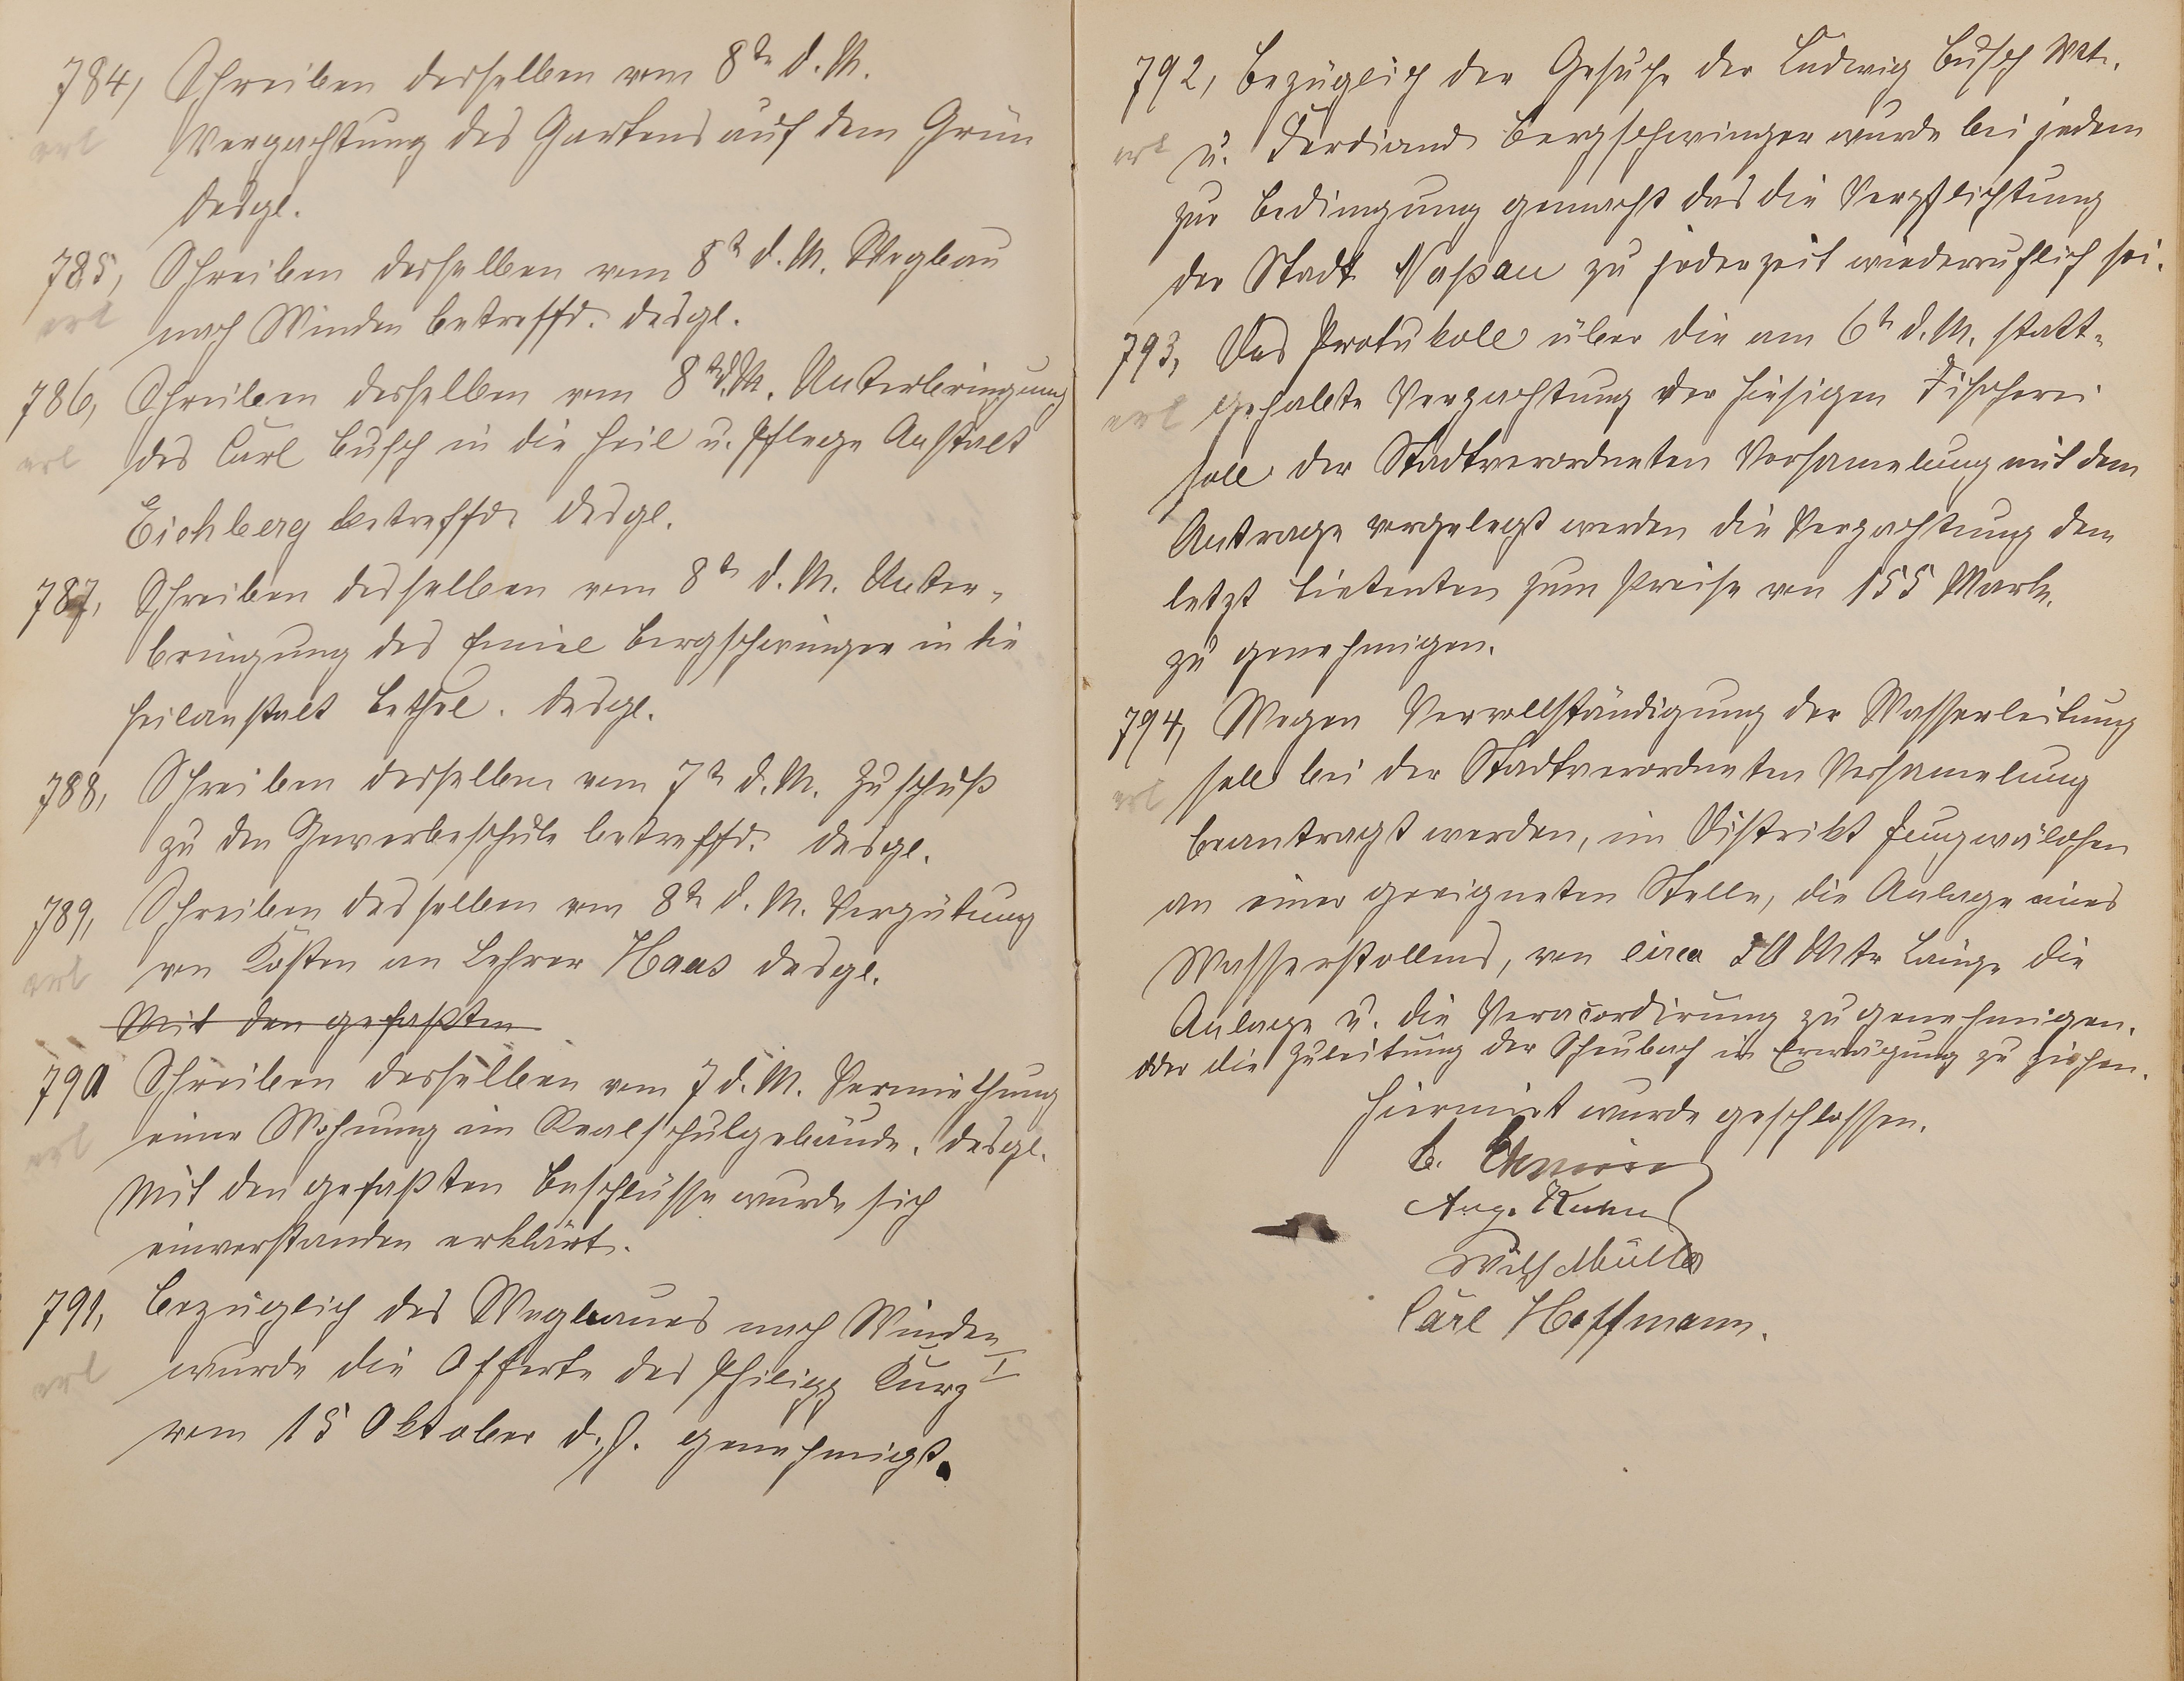 784, Schreiben desselben vom 8tn d. M.
erl Verpachtung des Gartens auf dem Grün
desgl.
785, Schreiben desselben vom 8tn d. M. Wegbau
erl nach Winden betreffd. desgl.
786, Schreiben desselben vom 8tn d. M. Unterbringung
erl des Carl Busch in die Heil u. Pflege Anstalt
Eichberg betreffd. desgl.
787, Schreiben desselben vom 8tn d. M. Unter-
bringung des Emiel Bergschwinger in die
Heilanstalt Bethel. desgl.
788, Schreiben desselben vom 7tn d. M. Zuschuß
zu der Gewerbeschule betreffd. desgl.
789, Schreiben desselben vom 8tn d. M. Vergütung
erl von Kosten an Lehrer Haas desgl.
Mit den gefaßten
790 Schreiben desselben vom 7 d. M. Vermiethung
erl einer Wohnung im Realschulgebäude. desgl.
Mit den gefaßten Beschlüsse wurde sich
einverstanden erklärt.
791, Bezüglich des Wegbaues nach Winden
erl wurde die Offerte des Philipp Kurz I
vom 15 Oktober d. J. genehmigt.
792, Bezüglich der Gesuche der Ludwig Busch Wtt.
erl u. Ferdiand Bergschwinger wurde bei jedem
zur Bedingung gemacht das die Verpflichtung
der Stadt Naßau zu jederzeit wiederruflich sei.
793, Das Protukoll über die am 6tn d. M. statt-
erl gehabte Verpachtung der hiesigen Fischerei
soll der Stadtverordneten Versamelung mit dem
Antrage vorgelegt werden die Verpachtung dem
letzt bietenten zum Preise von 155 Mark.
zu genehmigen.
794, Wegen Vervollständigung der Wasserleitung
erl soll bei der Stadtverordneten Versamelung
beantragt werden, im Distrikt Jungwäldchen
an einer geeigneten Stelle, die Anlage eines
Wasserstollens, von circa 50 Mtr Länge die
Anlage u. die Veracordirung zu genehmigen.
oder die Zuleitung der Scheubach in Erwägung zu ziehen.
Hiermiet wurde geschlossen.
Aug. Kuhn
Wilh Müller
Carl Hoffmann.